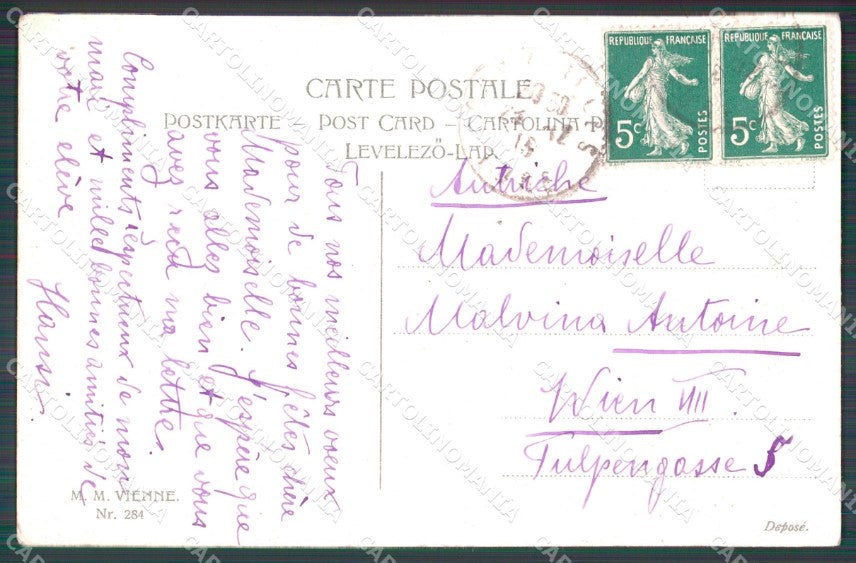 CARTE POSTALE
POSTKARTE - POST CARD - CARTOLINA P
LEVELEZŐ-LAP.
REPUBLIQUE FRANÇAISE
5c
POSTES
REPUBLIQUE FRANÇAISE
5c
POSTES
Tous nos meilleurs voeux
pour de bonnes fêtes chère
Mademoiselle. J'espère que
vous allez bien et que vous
avez reçu ma lettre.
Compliments respectueux de mon
mari et mille bonnes amitiés de
votre élève
Hansi.
Autriche
Mademoiselle
Malvina Antoine
Wien VIII.
Tulpengasse 5
M. M. VIENNE.
Nr. 284
Deposé.
CARTOLINOMANIA